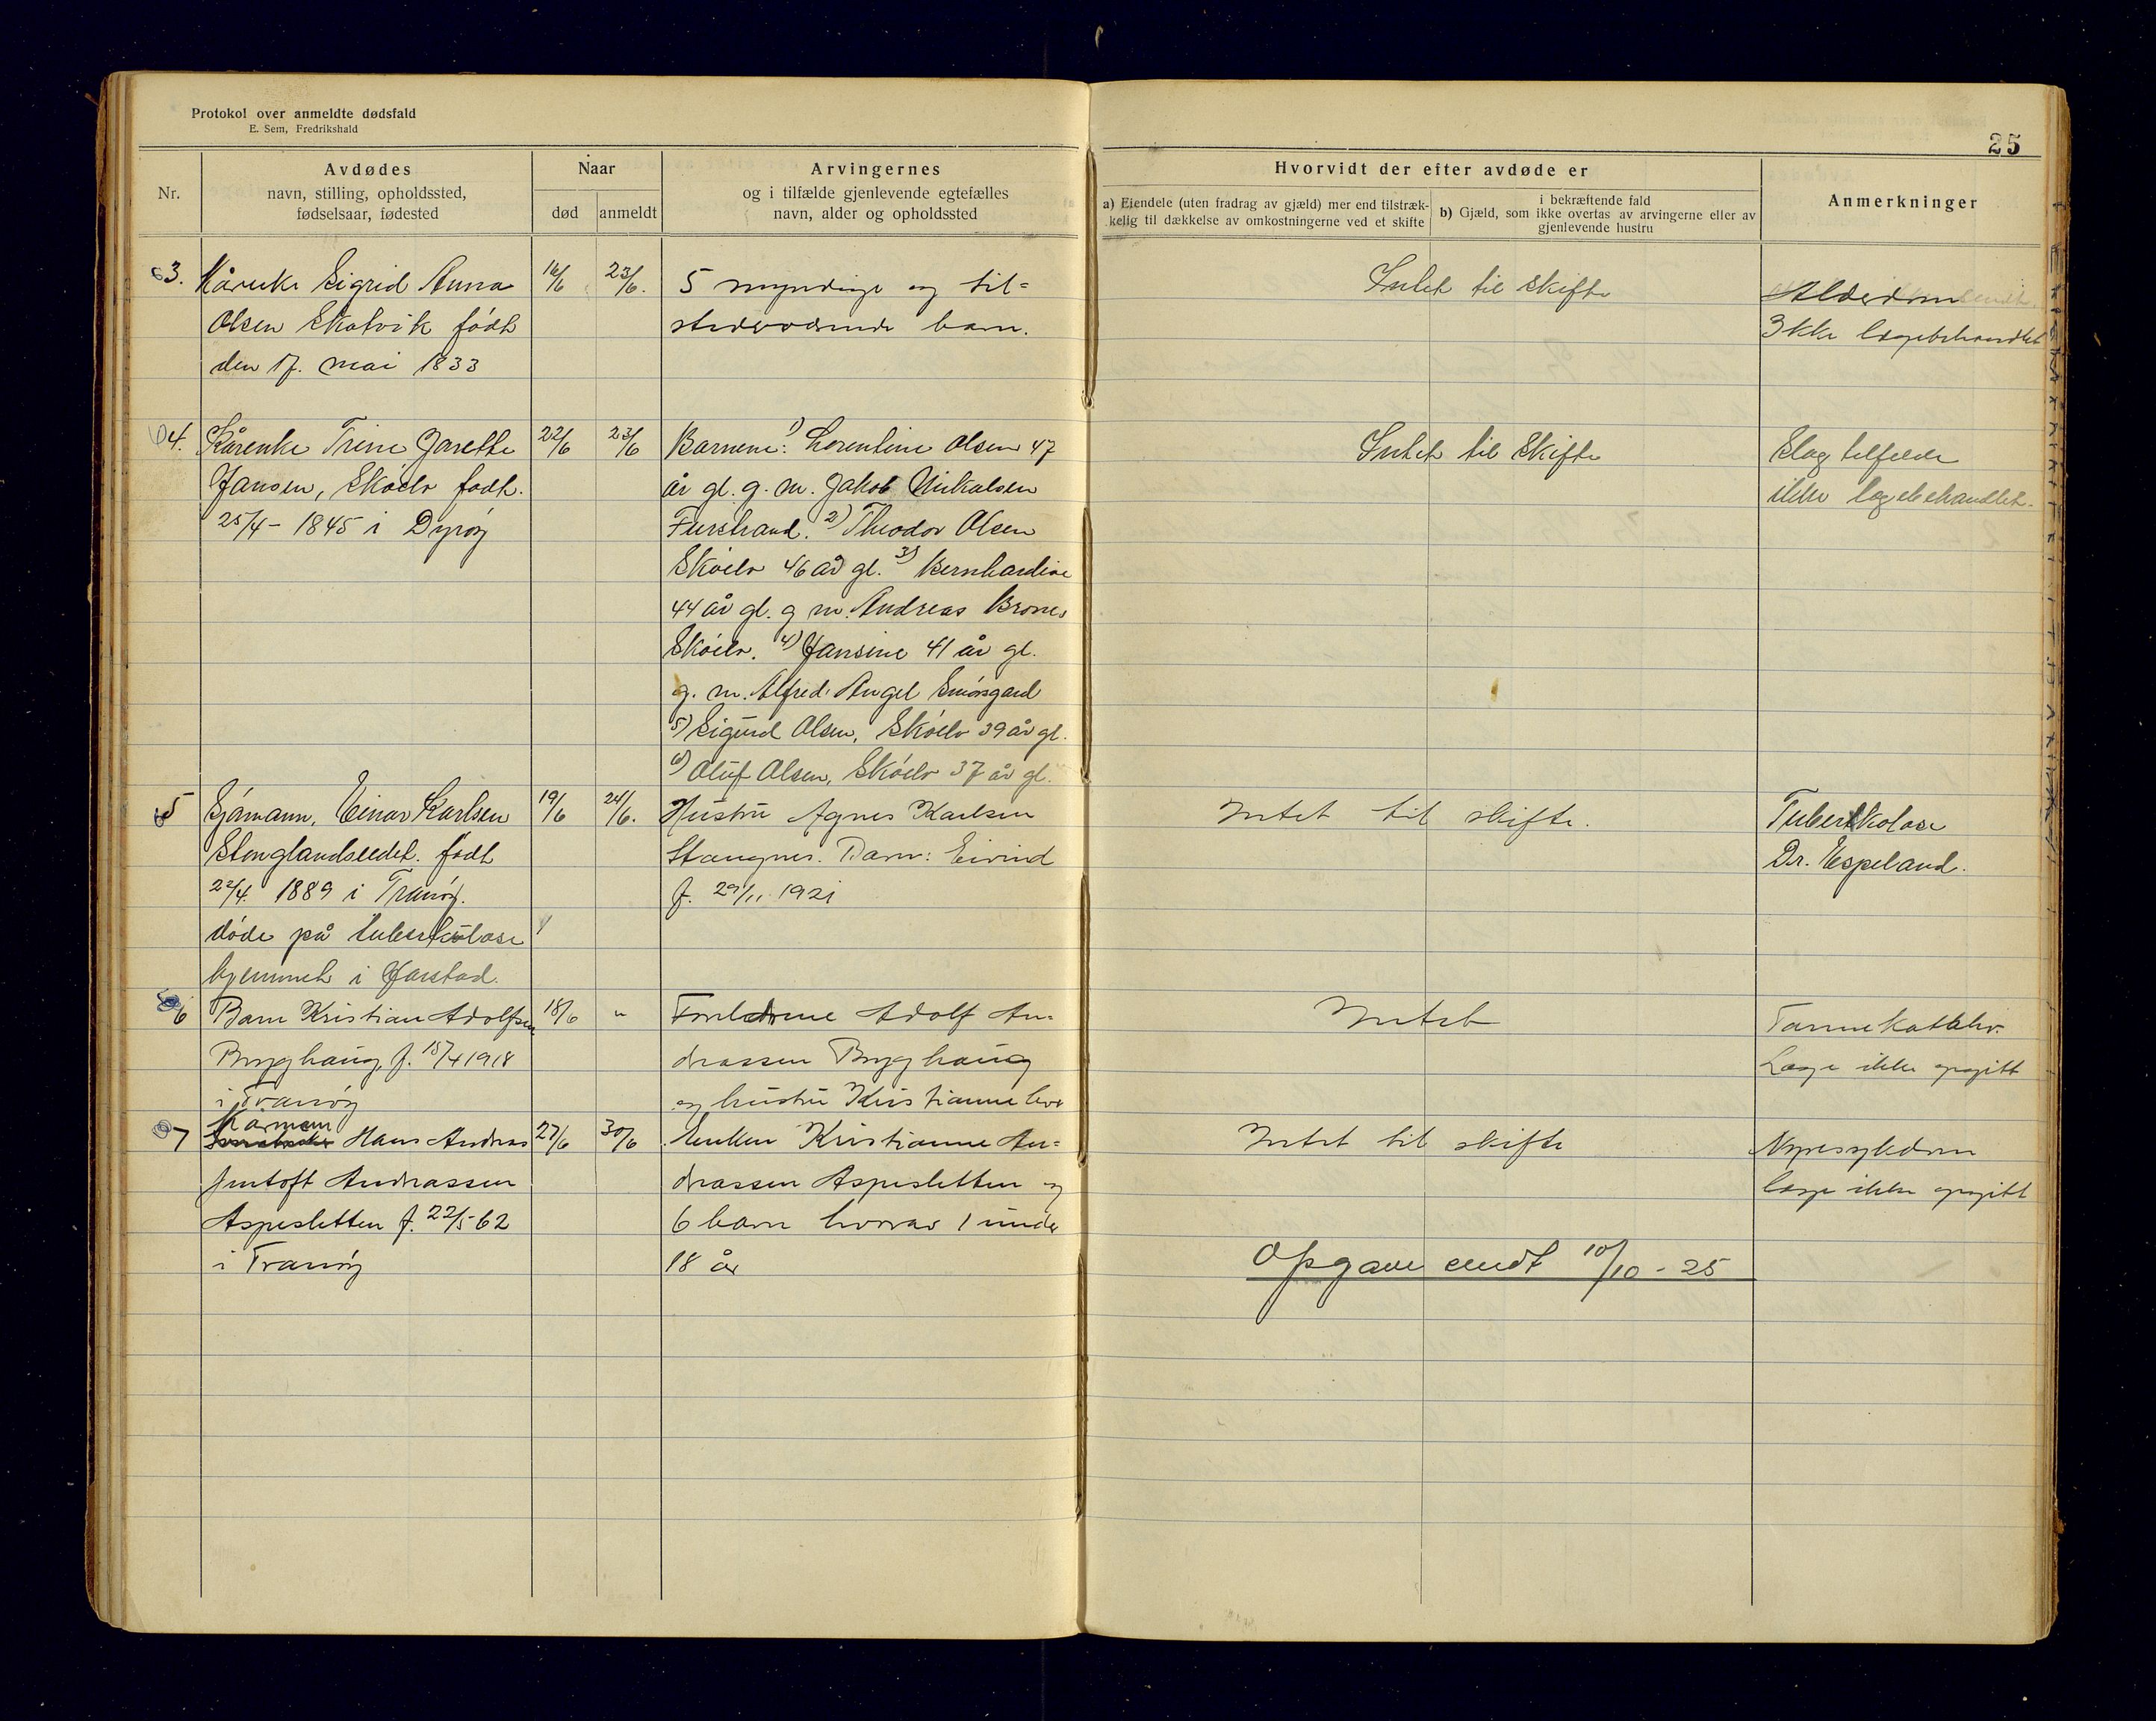 Protokol over anmeldte dødsfald
E. Sem, Fredrikshald
25
Nr.
Avdødes
navn, stilling, opholdssted,
fødselsaar, fødested
Naar
død
anmeldt
Arvingernes
og i tilfælde gjenlevende egtefælles
navn, alder og opholdssted
Hvorvidt der efter avdøde er
a) Eiendele (uten fradrag av gjæld) mer end tilstræk-
kelig til dækkelse av omkostningerne ved et skifte
i bekræftende fald
b) Gjæld, som ikke overtas av arvingerne eller av
gjenlevende hustru
Anmerkninger
3. Kårenke Sigrid Anna 16/6 23/6. 5 myndige og til= Intet til skifte Alderdom
Olsen Skatvik født stedeværende barn. Ikke lægebehandlet
den 17. mai 1833
4. Kårenke Trine Jarette 22/6 23/6 Barnene: 1) Lorentine Olsen 47 Intet til skifte Slagtilfelde
Jansen, Skóelv født. år gl. g. m. Jakob Nikalsen ikke lægebehandlet.
25/4 - 1845 i Dyróy Furstrand. 2) Theodor Olsen
Skóelv 46 år gl. 3) Bernhardine
44 år gl. g m. Andreas Brones
Skóelv. 4) Jansine 41 år gl.
g. m. Alfred Angel Smórsgard
5) Sigurd Olsen, Skóelv 39 år gl.
6) Oluf Olsen, Skóelv 37 år gl.
5 Sjómann, Einar Karlsen 19/6 24/6. Hustru Agnes Karlsen Intet til skifte. Tuberkolose
Stonglandseidet. født Stangnes. Barn: Eivind Dr. Espeland.
22/4. 1889 i Tranóy. f. 29/11 1921
dóde på tuberkulose
hjemmet i Harstad.
6 Barn Kristian Adolfsen 18/6 " Foreldrene Adolf An= Intet Tarmekatahr.
Brygghaug, f. 15/4 1918 dreassen Brygghaug Læge ikke opgitt
i Tranóy og hustru Kristianne
Kårmann
7 Hans Andreas 27/6 30/6 Enken Kristianne An= Intet til skifte Nyresykdom
Jentoft Andreassen dreassen Aspesletten og læge ikke opgitt
Aspesletten f. 22/5-62 6 barn hvorav 1 under
i Tranóy 18 år
Opgave sendt 10/10 - 25